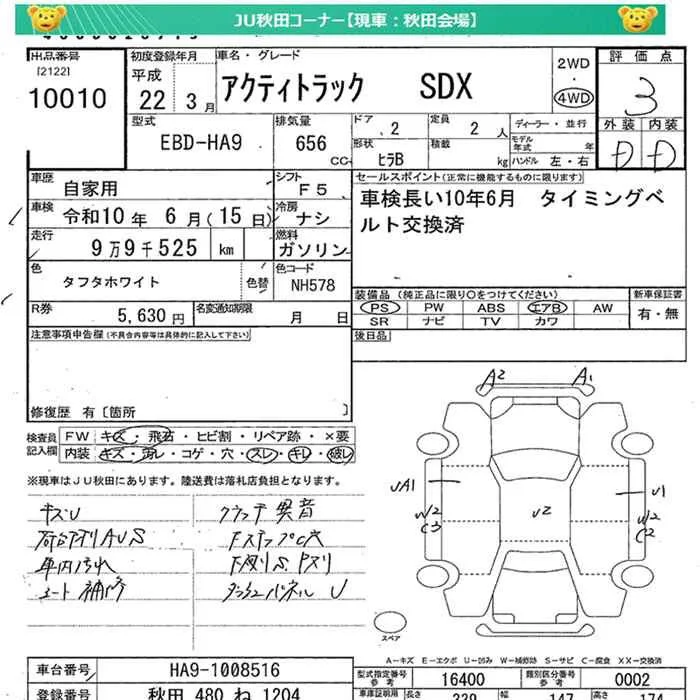 JU秋田コーナー【現車：秋田会場】
出品番号
[2122]
10010
初度登録年月
平成
22 3月
車名・グレード
アクティトラック SDX
2WD
4WD
評価点
3
外装 内装
D D
型式
EBD-HA9
排気量
656
CC
ドア
2
定員
2 人
ディーラー・並行
形状
ヒラB
積載
kg
モデル年式 年
ハンドル 左・右
車歴
自家用
シフト
F5
車検
令和10年 6月(15日)
冷房
ナシ
走行
9万9千525 km
燃料
ガソリン
色
タフタホワイト
色替
色コード
NH578
R券
5,630 円
名変通知期限
月 日
セールスポイント(正常に機能するものに限ります)
車検長い10年6月 タイミングベ
ルト交換済
装備品 (純正品に限り○をつけてください)
PS PW ABS エアB AW
SR ナビ TV カワ
新車保証書
有・無
後日品
注意事項申告欄(不具合内容等は具体的に記入して下さい)
修復歴 有〔箇所 〕
検査員
記入欄
FW キズ・飛石・ヒビ割・リペア跡・×要
内装 キズ・汚レ・コゲ・穴・スレ・キレ・破レ
※現車はJU秋田にあります。陸送費は落札店負担となります。
キズU
クラッチ異音
荷台アオリAUS
車内汚れ
コート補修
下廻りS
ダッシュパネルU
A2 A1
UA1
U1
W2
C3
U2
W2
C2
スペア
A－キズ E－エクボ U－凹み W－補修跡 S－サビ C－腐食 XX－交換済
車台番号
HA9-1008516
登録番号
秋田 480 ね 1204
型式指定番号
参考
16400
類別区分番号
参考
0002
車庫証明用
参考
長さ
339
幅
147
高さ
174